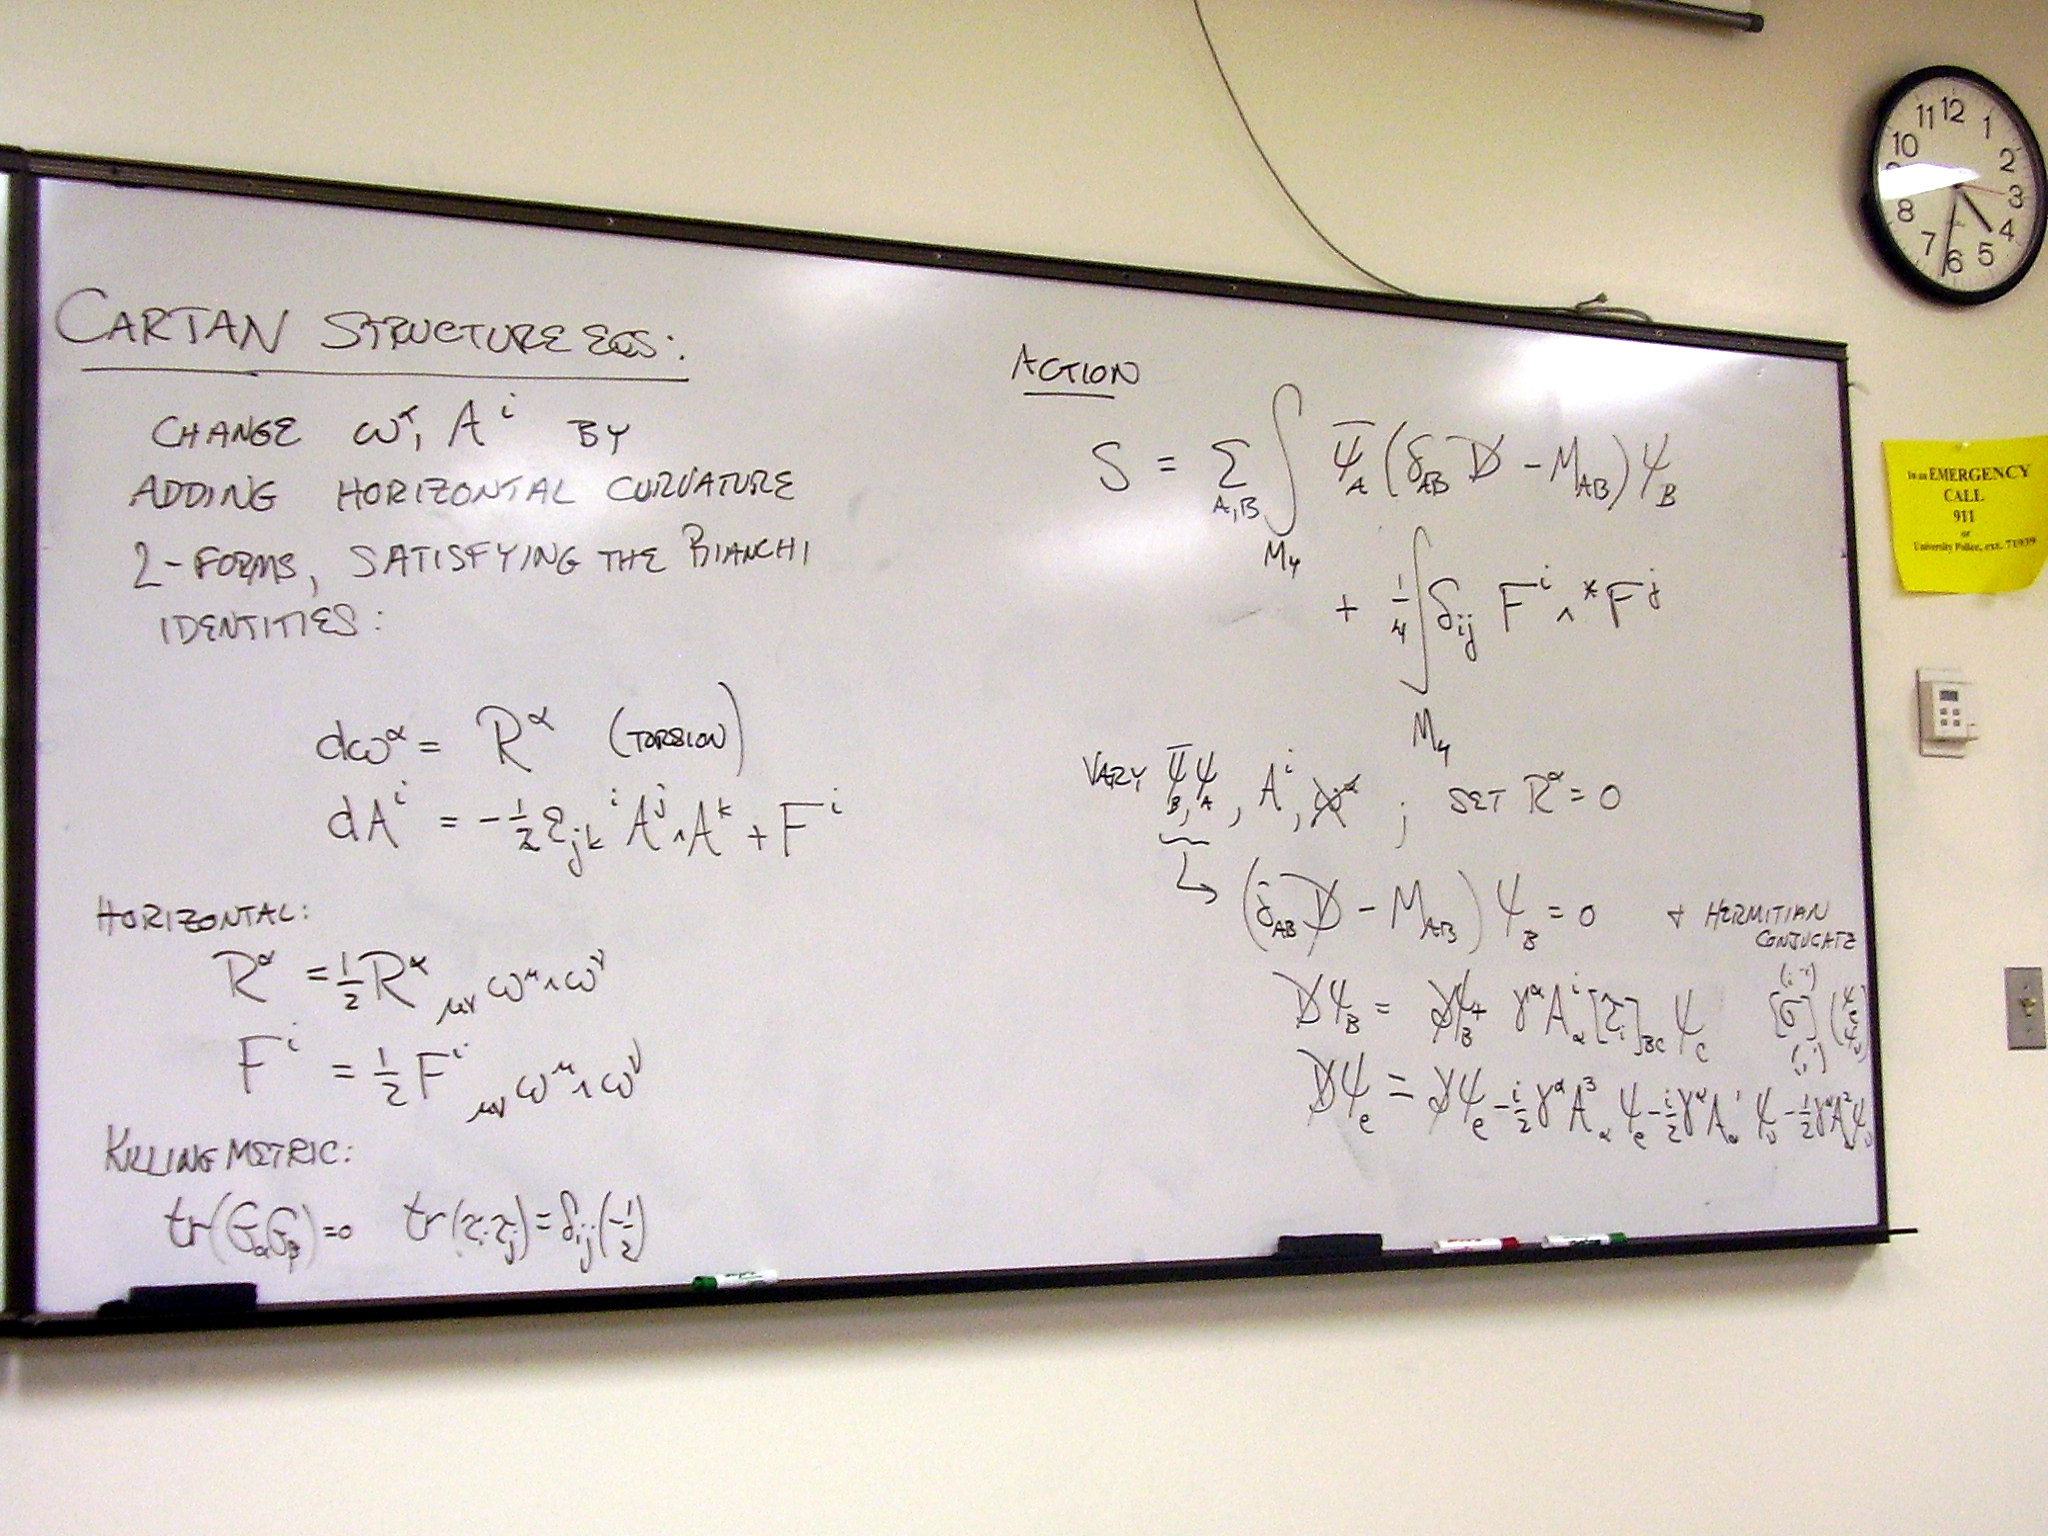 CARTAN STRUCTURE EQS:
CHANGE ωᵅ, Aⁱ BY
ADDING HORIZONTAL CURVATURE
2-FORMS, SATISFYING THE BIANCHI
IDENTITIES:
dω^α = R^α (TORSION)
dA^i = -1/2 ε_jk^i A^j ∧ A^k + F^i
HORIZONTAL:
R^α = 1/2 R^α_μν ω^μ ∧ ω^ν
F^i = 1/2 F^i_μν ω^μ ∧ ω^ν
KILLING METRIC:
tr(G_α G_β) = 0 tr(τ_i τ_j) = δ_ij (-1/2)
ACTION
S = Σ_A,B ∫_M4 ψ̄_A (δ_AB D̸ - M_AB) ψ_B
+ 1/4 ∫_M4 δ_ij F^i ∧ *F^j
VARY ψ̄_B, ψ_A, A^i, ω^α ; SET R^α = 0
(δ_AB D̸ - M_AB) ψ_B = 0 + HERMITIAN
CONJUGATE
D̸ψ_B = ∂̸ψ_B + γ^α A^i_α [τ_i]_BC ψ_C
D̸ψ_e = ∂̸ψ_e - i/2 γ^α A^3_α ψ_e - i/2 γ^α A^1_α ψ_ν - 1/2 γ^α A^2_α ψ_ν
11 12 1
10 2
3
8 4
7 6 5
In an EMERGENCY
CALL
911
or
University Police, ext. 71939